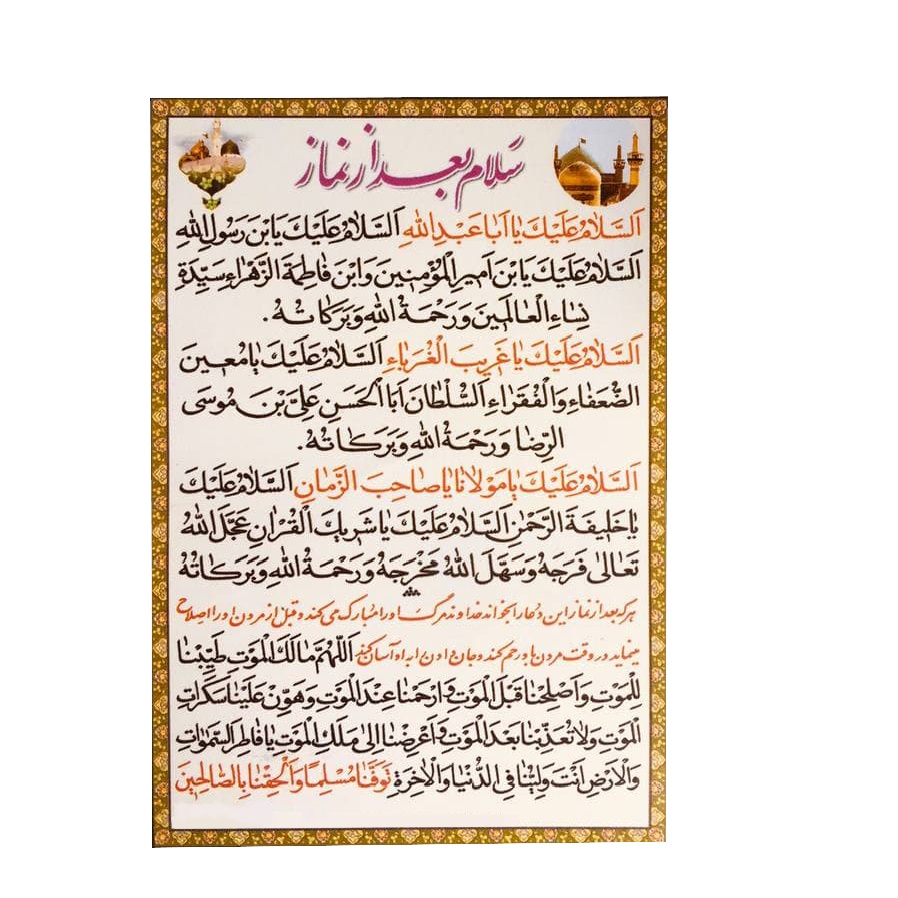 سلام بعد از نماز
اَلسَّلامُ عَلَيْكَ يٰا اَبا عَبْدِ اللهِ اَلسَّلامُ عَلَيْكَ يَابْنَ رَسُولِ اللهِ
اَلسَّلامُ عَلَيْكَ يَابْنَ اَميرِ الْمُؤْمِنينَ وَابْنَ فٰاطِمَةَ الزَّهْراءِ سَيِّدَةِ
نِسٰاءِ الْعٰالَمينَ وَرَحْمَةُ اللهِ وَبَرَكٰاتُهُ .
اَلسَّلامُ عَلَيْكَ يٰا غَريبَ الْغُرَبٰاءِ اَلسَّلامُ عَلَيْكَ يٰا مُعينَ
الضُّعَفٰاءِ وَالْفُقَرٰاءِ اَلسُّلْطٰانَ اَبَا الْحَسَنِ عَلِىَّ بْنَ مُوسَى
الرِّضٰا وَرَحْمَةُ اللهِ وَبَرَكٰاتُهُ.
اَلسَّلامُ عَلَيْكَ يٰا مَوْلانٰا يٰا صٰاحِبَ الزَّمٰانِ اَلسَّلامُ عَلَيْكَ
يٰا خَليفَةَ الرَّحْمٰنِ اَلسَّلامُ عَلَيْكَ يٰا شَريكَ الْقُرْانِ عَجَّلَ اللهُ
تَعٰالىٰ فَرَجَهُ وَسَهَّلَ اللهُ مَخْرَجَهُ وَرَحْمَةُ اللهِ وَبَرَكٰاتُهُ
هرکه بعد از نماز این دعا را بخواند خداوند مرگ او را مبارک می کند و قبل از مردن او را اصلاح
مینماید و در وقت مردن با و رحم کند و جان دادن را به او آسان کند اَللّٰهُمَّ مٰالِكَ الْمَوْتِ طَيِّبْنٰا
لِلْمَوْتِ وَاَصْلِحْنٰا قَبْلَ الْمَوْتِ وَارْحَمْنٰا عِنْدَ الْمَوْتِ وَهَوِّنْ عَلَيْنٰا سَكَرٰاتِ
الْمَوْتِ وَلا تُعَذِّبْنٰا بَعْدَ الْمَوْتِ وَ اَعْرِضْنٰا اِلىٰ مَلَكِ الْمَوْتِ يٰا فٰاطِرَ السَّمٰوٰاتِ
وَالْاَرْضِ اَنْتَ وَلِيُّنٰا فِى الدُّنْيٰا وَالْاٰخِرَةِ تَوَفَّنٰا مُسْلِمًا وَاَلْحِقْنٰا بِالصّٰالِحينَ